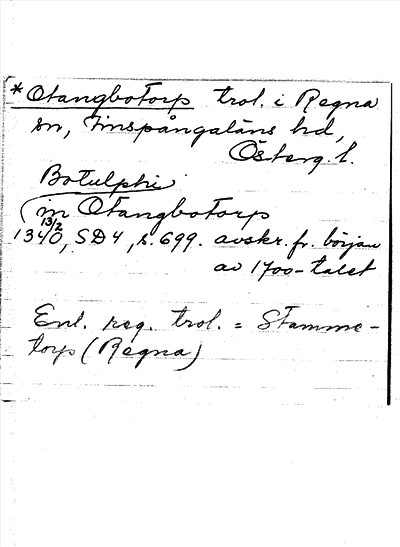 *Otangbotorp trol. i Regna
sn, Finspångaläns hd,
Österg. l.
Botulphi
in Otangbotorp
13/2
1340, SD4, s. 699. avskr. fr. början
av 1700-talet
Enl. reg. trol. = Stamme-
torp (Regna)